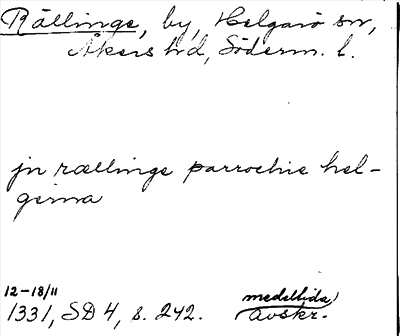 Rällinge, by, Helgarö sn,
Åkers hd, Söderm. l.
jn rællinge parrochie hel-
gerna
12-18/11
1331, SD 4, s. 242.
medeltida
avskr.